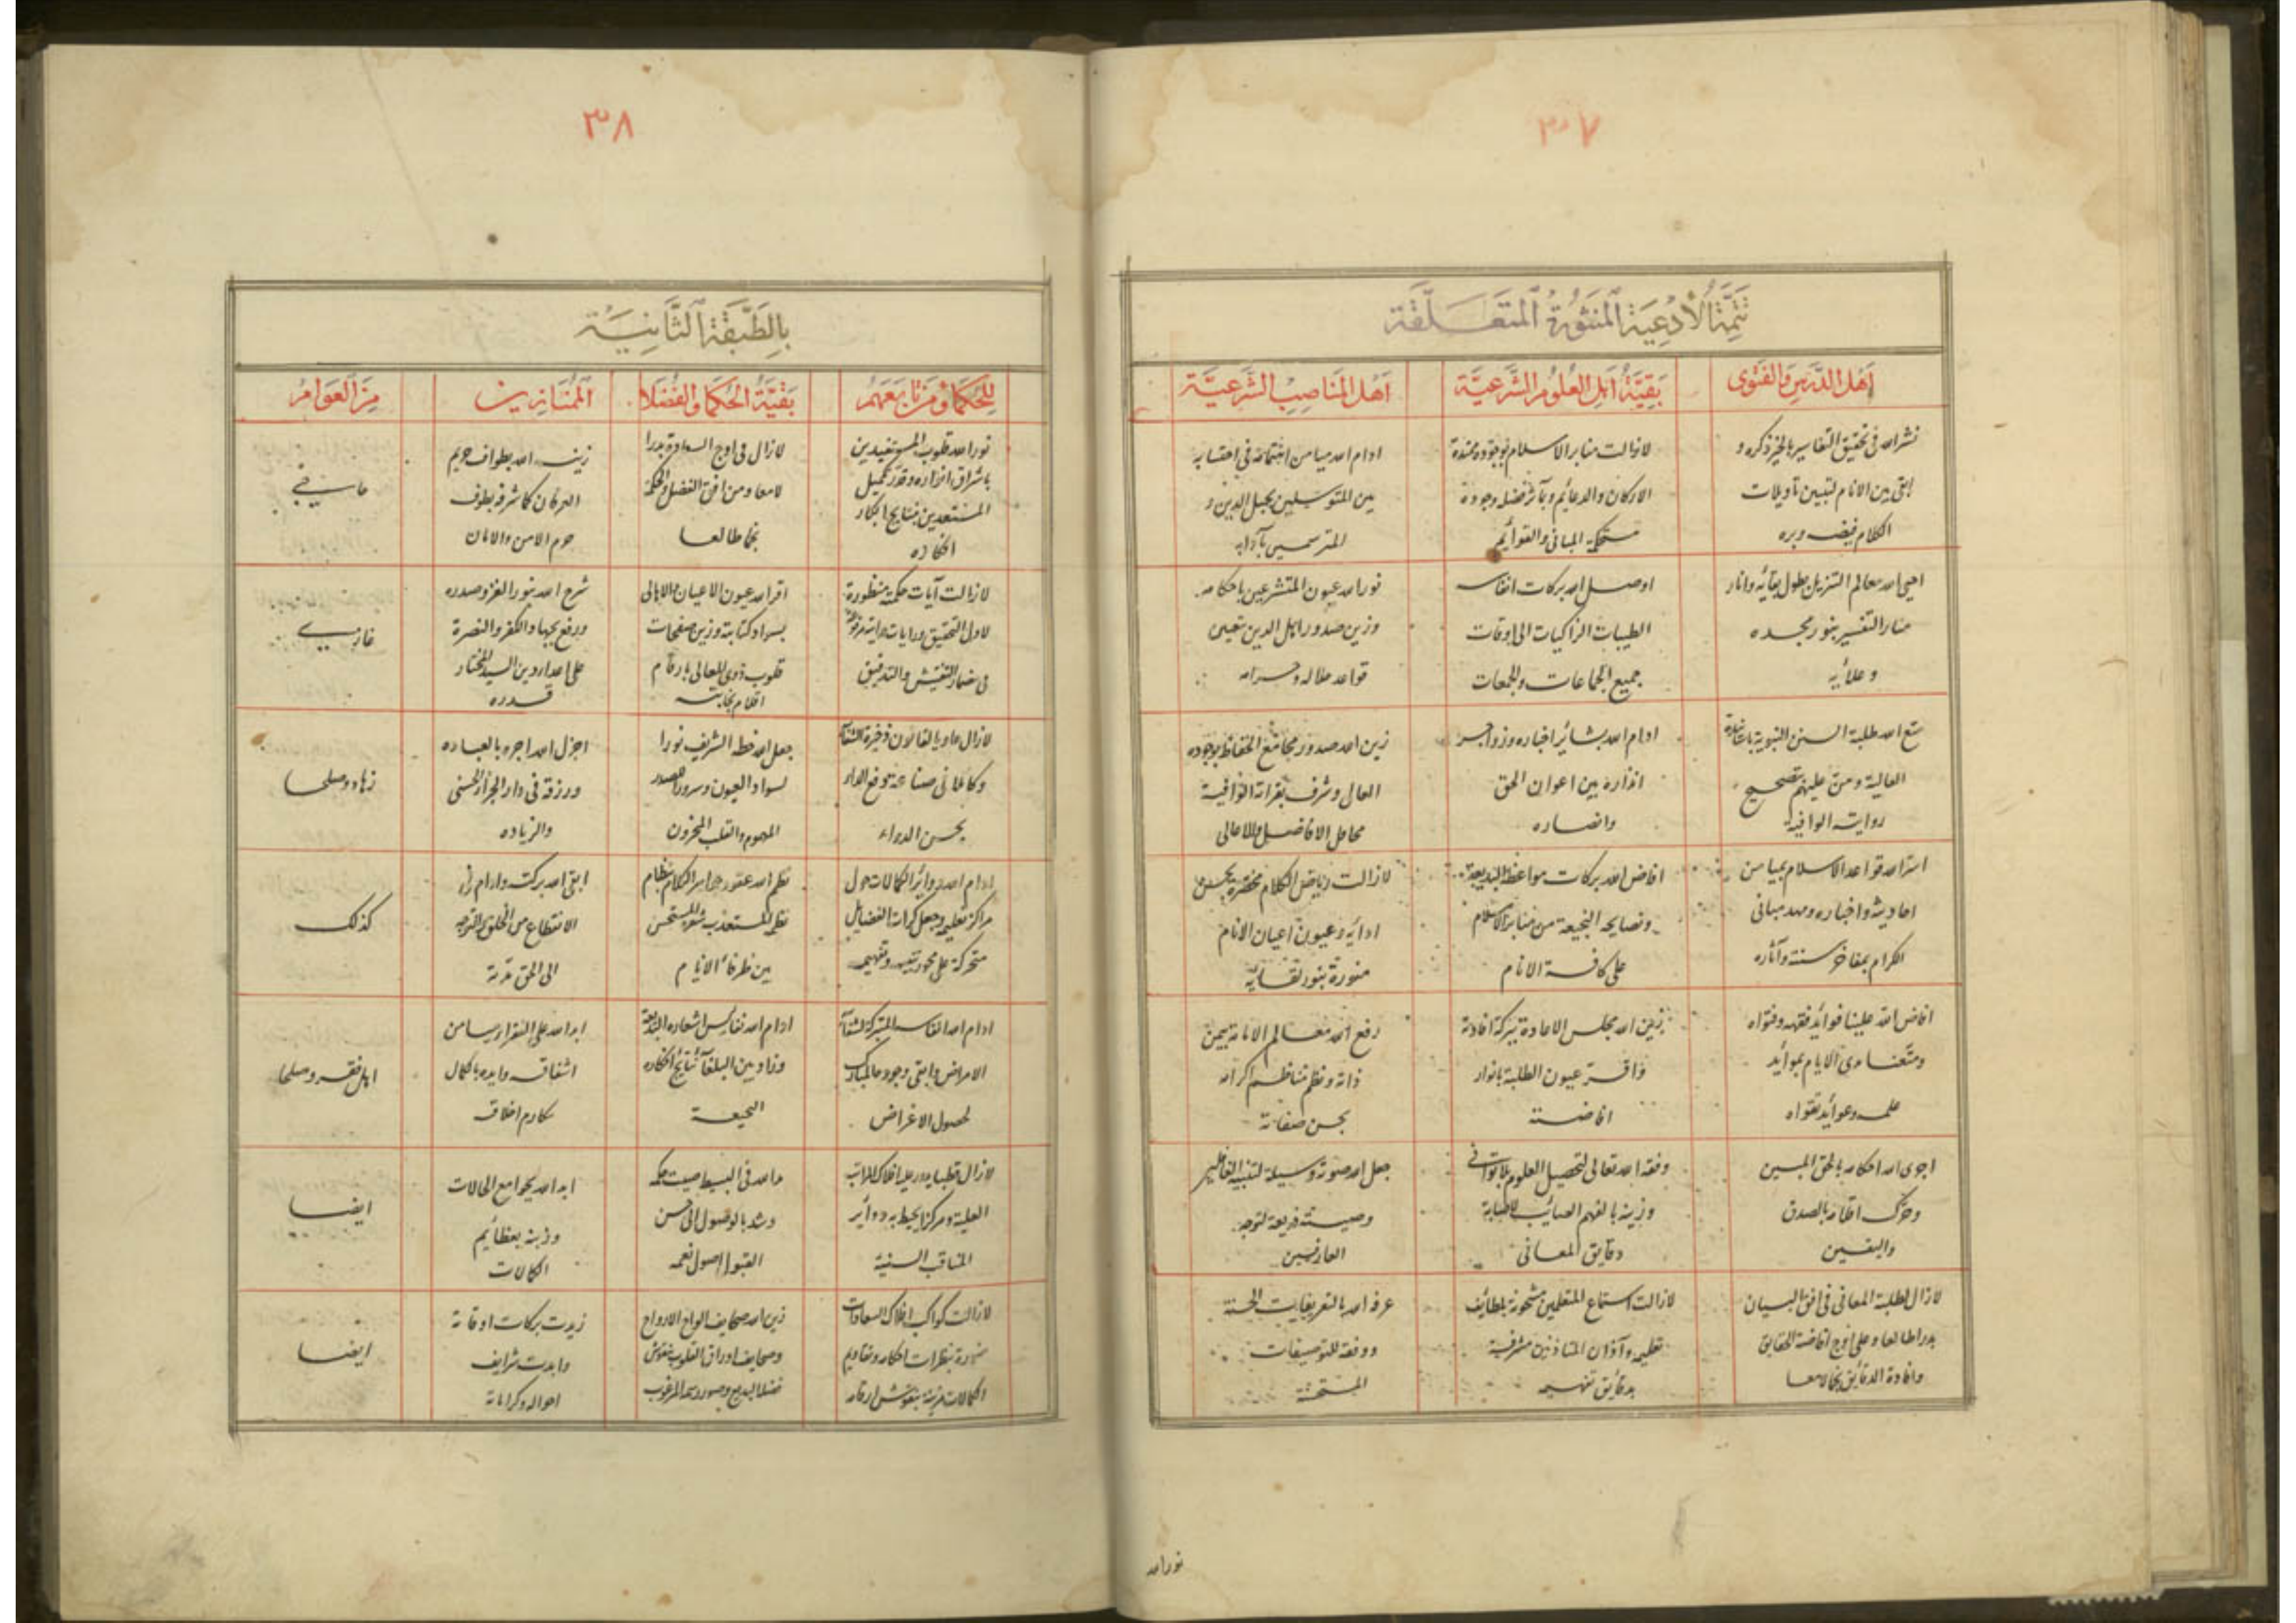 ٣٧
تتمة الأدعية المنثورة المتعلقة
أهل الدرس والفتوى
بقية أهل العلوم الشرعية
أهل المناصب الشرعية
نشر الله فى تحقيق التفاسير بالخير ذكره و
ابقى بين الانام لتبيين تأويلات
الكلام فيضه وبره
لازالت منابر الاسلام بوجوده ممتدة
الاركان والدعائم وبآثار فضل وجوده
مستحكمة المبانى والقوائم
ادام الله ميامن اهتمامه فى احتسابه
بين المتوسلين بحبل الدين و
المترسمين بآدابه
احيى الله معالم التنزيل بطول بقائه وانار
منار التفسير بنور مجده
وعلائه
اوصل الله بركات انفاسه
الطيبات الزاكيات الى اوقات
جميع الجماعات والجمعات
نور الله عيون المتشرعين باحكامه
وزين صدور اهل الدين بتعيين
قواعد حلاله وحرامه
متع الله طلبة السنن النبوية
العالية ومن عليهم بتصحيح
رواياته الوافية
ادام الله بشائر اخباره وزواجر
انذاره بين اعوان الحق
وانصاره
زين الله صدور مجامع الحفاظ بوجوده
العالى وشرف بقراءته الوافية
محافل الافاضل والاعالى
قواعد الاسلام بميامن
احاديثه واخباره ومهد مبانى
الكرام بمفاخر سننه وآثاره
افاض الله بركات مواعظه البديعة
ونصايحه النجيعة من منابر الاسلام
على كافة الانام
لازالت رياض الكلام مخضرة بحسن
ادائه وعيون اعيان الانام
منورة بنور لقائه
افاض الله علينا فوائد فقهه وفتواه
ومتعنا مدى الايام بموائد
علمه وعوائد تقواه
زين الله مجلس الاعادة ببركة افادته
واقر عيون الطلبة بانوار
افاضته
رفع الله معالم الامامة بيمن
ذاته ونظم مناظم اكرامه
بحسن صفاته
اجرى الله احكامه بالحق المبين
وحرك اقلامه بالصدق
واليقين
وفقه الله تعالى لتحصيل العلوم بلا توانى
وزينه بالفهم الصائب لاصابة
دقايق المعانى
جعل الله صوته وسيلة لتنبيه الغافلين
وصيته ذريعة لتوجه
العارفين
لازال لطلبة المعانى فى افق البيان
بدرا طالعا وعلى اوج افاضة الحقايق
وافادة الدقائق نجما لامعا
لازالت اسماع المتعلمين مشحونة بلطائف
تعليمه وآذان المتأذنين مشرفة
بدقايق تفهيمه
عرفه الله بالتعريفات الحسنة
ووفقه للتوصيفات
المستحسنة
نور الله
٣٨
بالطبقة الثانية
للحكماء ومن تابعهم
بقية الحكما والفضلا
الممتازين
من العوام
نور الله قلوب المستفيدين
باشراق انواره وقدر تكميل
المستعدين بنتايج ابكار
افكاره
لازال فى اوج السعادة بدرا
لامعا ومن افق الفضل والحكمة
نجما طالعا
زينه الله بطواف حريم
العرفان كما شرفه بطوف
حرم الامن والامان
حاجى
لازالت آيات حكمته منظورة
لاولى التحقيق ورايات درايته مرفوعة
فى مضمار التفتيش والتدقيق
اقر الله عيون الاعيان والاهالى
بسواد كتابته وزين صفحات
قلوب ذوى المعالى بارقام
اقلام نجابته
شرح الله بنور الغزو صدره
ورفع بجهاد الكفر والنصرة
على اعداء دين السيد المختار
قدره
غازى
لازال حاويا لقانون ذخيرة الشفاء
وكاملا فى صناعة دفع الداء
بحسن الدواء
جعل الله خطه الشريف نورا
لسواد العيون وسرورا لصدر
المهموم والقلب المحزون
اجزل الله اجره بالعباده
ورزقه فى دار الجزاء الحسنى
والزياده
زهاد وصلحا
ادام الله دوائر الكمالات حول
مراكز تعليمه وجعل كرات الفضايل
متحركة على محور تنبيهه وتفهيمه
نظم الله عقود جواهر الكلام بنظام
نظمه المستعذب وشعره المستحسن
بين ظرفاء الايام
ابقى الله بركته وادام له
الانقطاع من الخلق والتوجه
الى الحق قربة
كذلك
ادام الله انفاسه المتبركة لشفاء
الامراض وابقى وجوده المبارك
لحصول الاغراض
ادام الله نفايس اشعاره البديعة
وزاد بين البلغاء نتايج افكاره
ابد الله على الفقراء ميامن
اشفاقه وايده بكمال
مكارم اخلاقه
اهل فقر وصلحا
لازال قطبا يدور عليه افلاك المراتب
العلية ومركزا يحيط به دوائر
المناقب السنية
مد الله فى البسيط صيت حكمه
وشد بالوصول الى حسن
القبول اصول نغمه
ابد الله بجوامع الحالات
وزينه بعظائم
الكمالات
ايضا
لازالت كواكب افلاك السعادات
منورة بنظرات احكامه وتقاويم
الكمالات مزينة بنقوش ارقامه
زين الله صحايف الواح الارواح
وصحايف اوراق القلوب بنقوش
فضله البديع وصور رسمه المرغوب
زيدت بركات اوقاته
وابدت شرايف
احواله وكراماته
ايضا